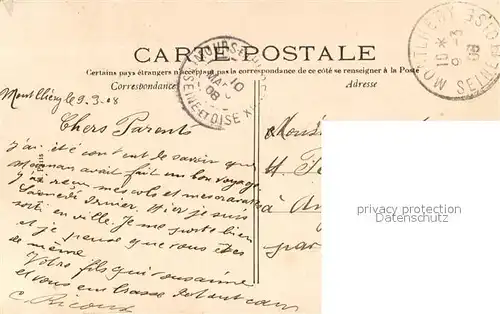 CARTE POSTALE
Certains pays étrangers n'acceptant pas la correspondance de ce côté se renseigner à la Poste
Correspondance
Adresse
MONTLHÉRY
10 * 9-3 08
SEINE-ET-OISE
MAR 10 08
SEINE-ET-OISE
Montlhéry le 9.3.08
Chers Parents
J'ai été content de savoir que
Maman avait fait un bon voyage.
J'ai reçu mes cols et mes cravates
Samedi dernier. Hier je suis
sorti en ville. Je me porte bien
et je pense que vous êtes
de même
Votre fils qui vous aime
et vous embrasse de tout cœur
C. Ricour
Paris
à
par
privacy protection
Datenschutz